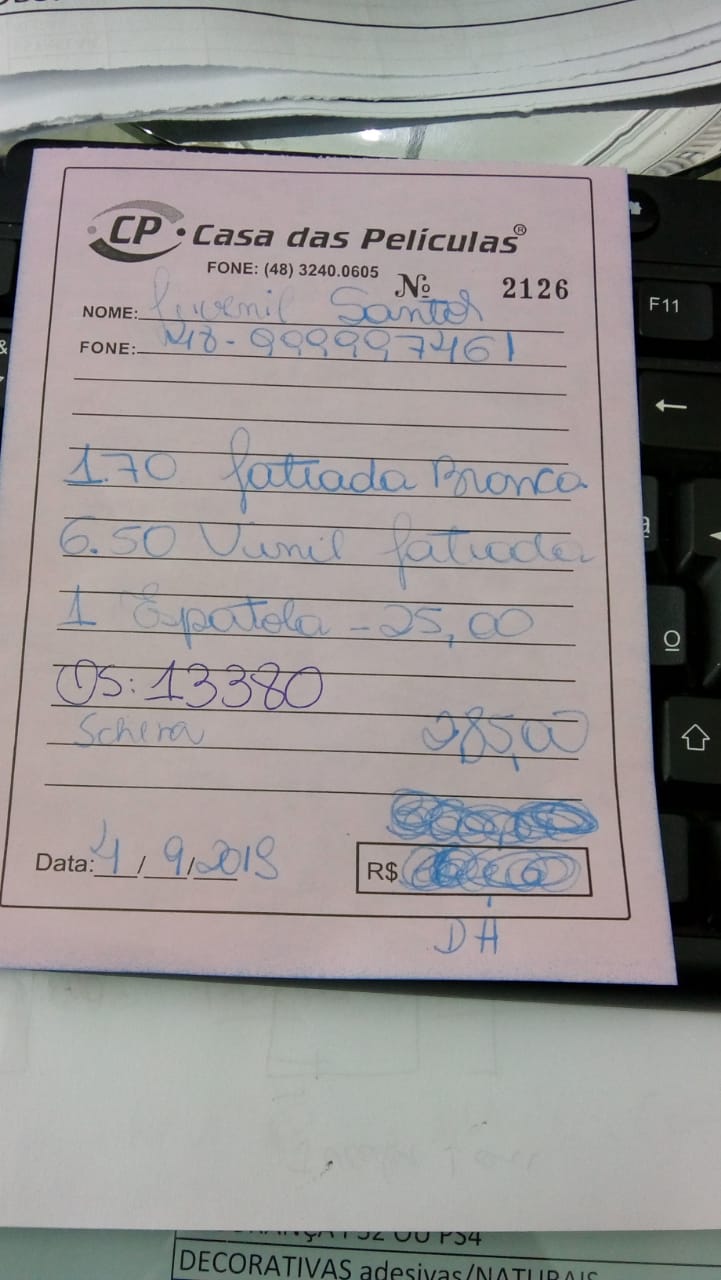 CP
Casa das Películas®
FONE: (48) 3240.0605
Nº 2126
NOME: Juvenil Santos
FONE: 48-999997461
1.70 fatiada Branca
6.50 Vinil fatiada
1 Espatola - 25,00
OS: 13380
Schera
285,00
Data: 4/9/2019
R$
DÁ
F11
DECORATIVAS adesivas/NATURAIS